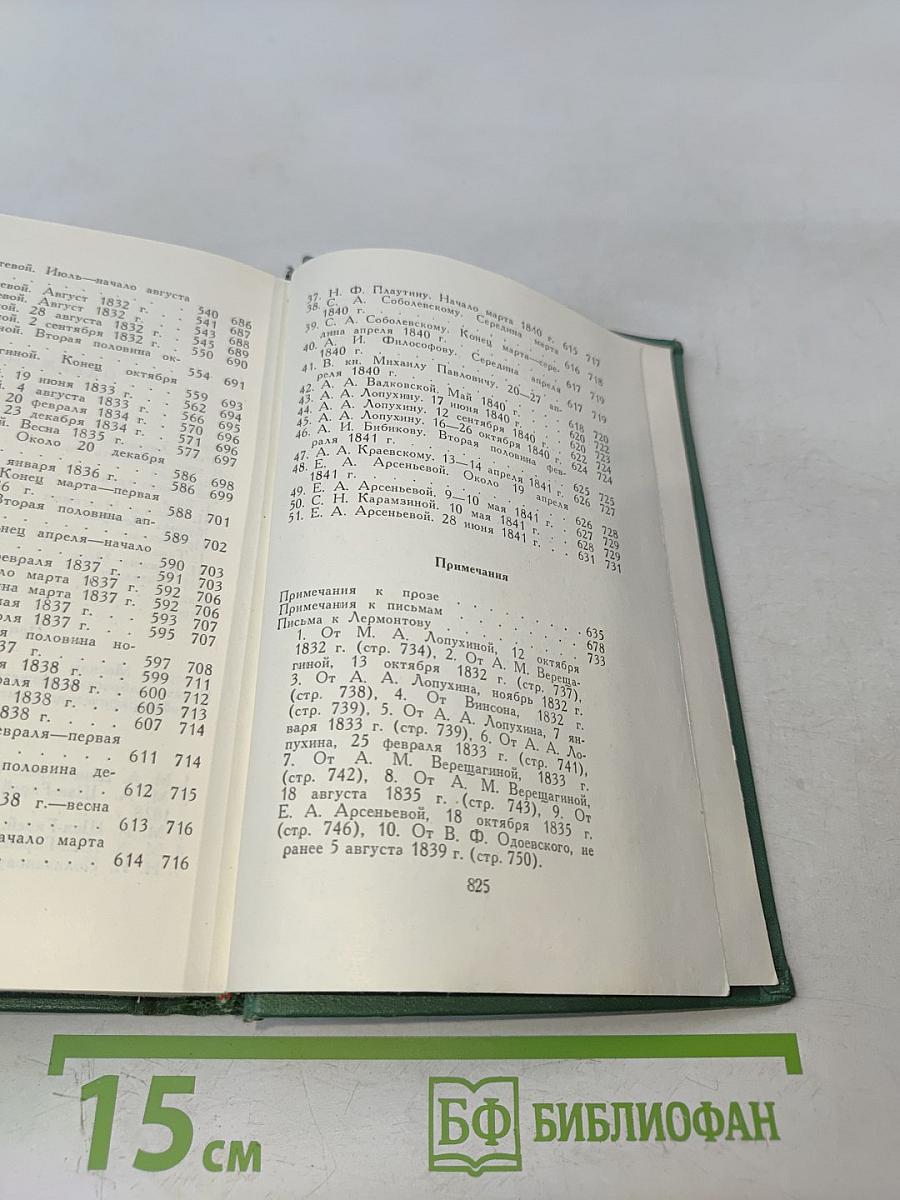 тевой. Июль—начало августа
. . . . . . . . . 540 686
евой. Август 1832 г. . . 541 687
евой. Август 1832 г. . . 543 688
ой. 28 августа 1832 г. . 545 689
ной. 2 сентября 1832 г. . 550 690
иной. Вторая половина ок-
. . . . . . . . . 554 691
гиной. Конец октября
. . . . . . . . . 559 693
19 июня 1833 г. . . 562 694
й. 4 августа 1833 г. . . 566 695
20 февраля 1834 г. . . 570 696
23 декабря 1834 г. . . 571 696
й. Весна 1835 г. . . . 577 697
Около 20 декабря
. . . . . . . . . 586 698
января 1836 г. . . . 586 699
Конец марта—первая
6 г. . . . . . . . 588 701
Вторая половина ап-
. . . . . . . . . 589 702
нец апреля—начало
. . . . . . . . . 590 703
евраля 1837 г. . . 591 703
ло марта 1837 г. 592 706
на марта 1837 г. . 592 706
мая 1837 г. . . . 593 707
ля 1837 г. . . . 595 707
я половина но-
37 г. . . . . . 597 708
я 1838 г. . . . 599 711
раля 1838 г. . 600 712
1838 г. . . . 605 713
838 г. . . . 607 714
евраля—первая
. . . . . . . 611 714
половина де-
. . . . . . . 612 715
38 г.—весна
. . . . . . . 613 716
начало марта
. . . . . . . 614 716
37. Н. Ф. Плаутину. Начало марта 1840 г. 615 717
38. С. А. Соболевскому. Середина марта
1840 г. . . . . . . . . . 616 718
39. С. А. Соболевскому. Конец марта—сере-
дина апреля 1840 г. . . . . . 617 719
40. А. И. Философову. Середина апреля
1840 г. . . . . . . . . . 617 719
41. В. кн. Михаилу Павловичу. 20—27 ап-
реля 1840 г. . . . . . . . . 618 720
42. А. А. Вадковской. Май 1840 г. . . . 620 722
43. А. А. Лопухину. 17 июня 1840 г. . . 620 723
44. А. А. Лопухину. 12 сентября 1840 г. . 622 724
45. А. А. Лопухину. 16—26 октября 1840 г. 624 724
46. А. И. Бибикову. Вторая половина фев-
раля 1841 г. . . . . . . . . 625 725
47. А. А. Краевскому. 13—14 апреля 1841 г. 626 727
48. Е. А. Арсеньевой. Около 19 апреля
1841 г. . . . . . . . . . 626 728
49. Е. А. Арсеньевой. 9—10 мая 1841 г. . 627 729
50. С. Н. Карамзиной. 10 мая 1841 г. . . 628 729
51. Е. А. Арсеньевой. 28 июня 1841 г. . . 631 731
Примечания
Примечания к прозе . . . . . . . . . 635
Примечания к письмам . . . . . . . . 678
Письма к Лермонтову . . . . . . . . 733
1. От М. А. Лопухиной, 12 октября
1832 г. (стр. 734), 2. От А. М. Вереща-
гиной, 13 октября 1832 г. (стр. 737),
3. От А. А. Лопухина, ноябрь 1832 г.
(стр. 738), 4. От Винсона, 1832 г.
(стр. 739), 5. От А. А. Лопухина, 7 ян-
варя 1833 г. (стр. 739), 6. От А. А. Ло-
пухина, 25 февраля 1833 г. (стр. 741),
7. От А. М. Верещагиной, 1833 г.
(стр. 742), 8. От А. М. Верещагиной,
18 августа 1835 г. (стр. 743), 9. От
Е. А. Арсеньевой, 18 октября 1835 г.
(стр. 746), 10. От В. Ф. Одоевского, не
ранее 5 августа 1839 г. (стр. 750).
825
15 см
БФ БИБЛИОФАН